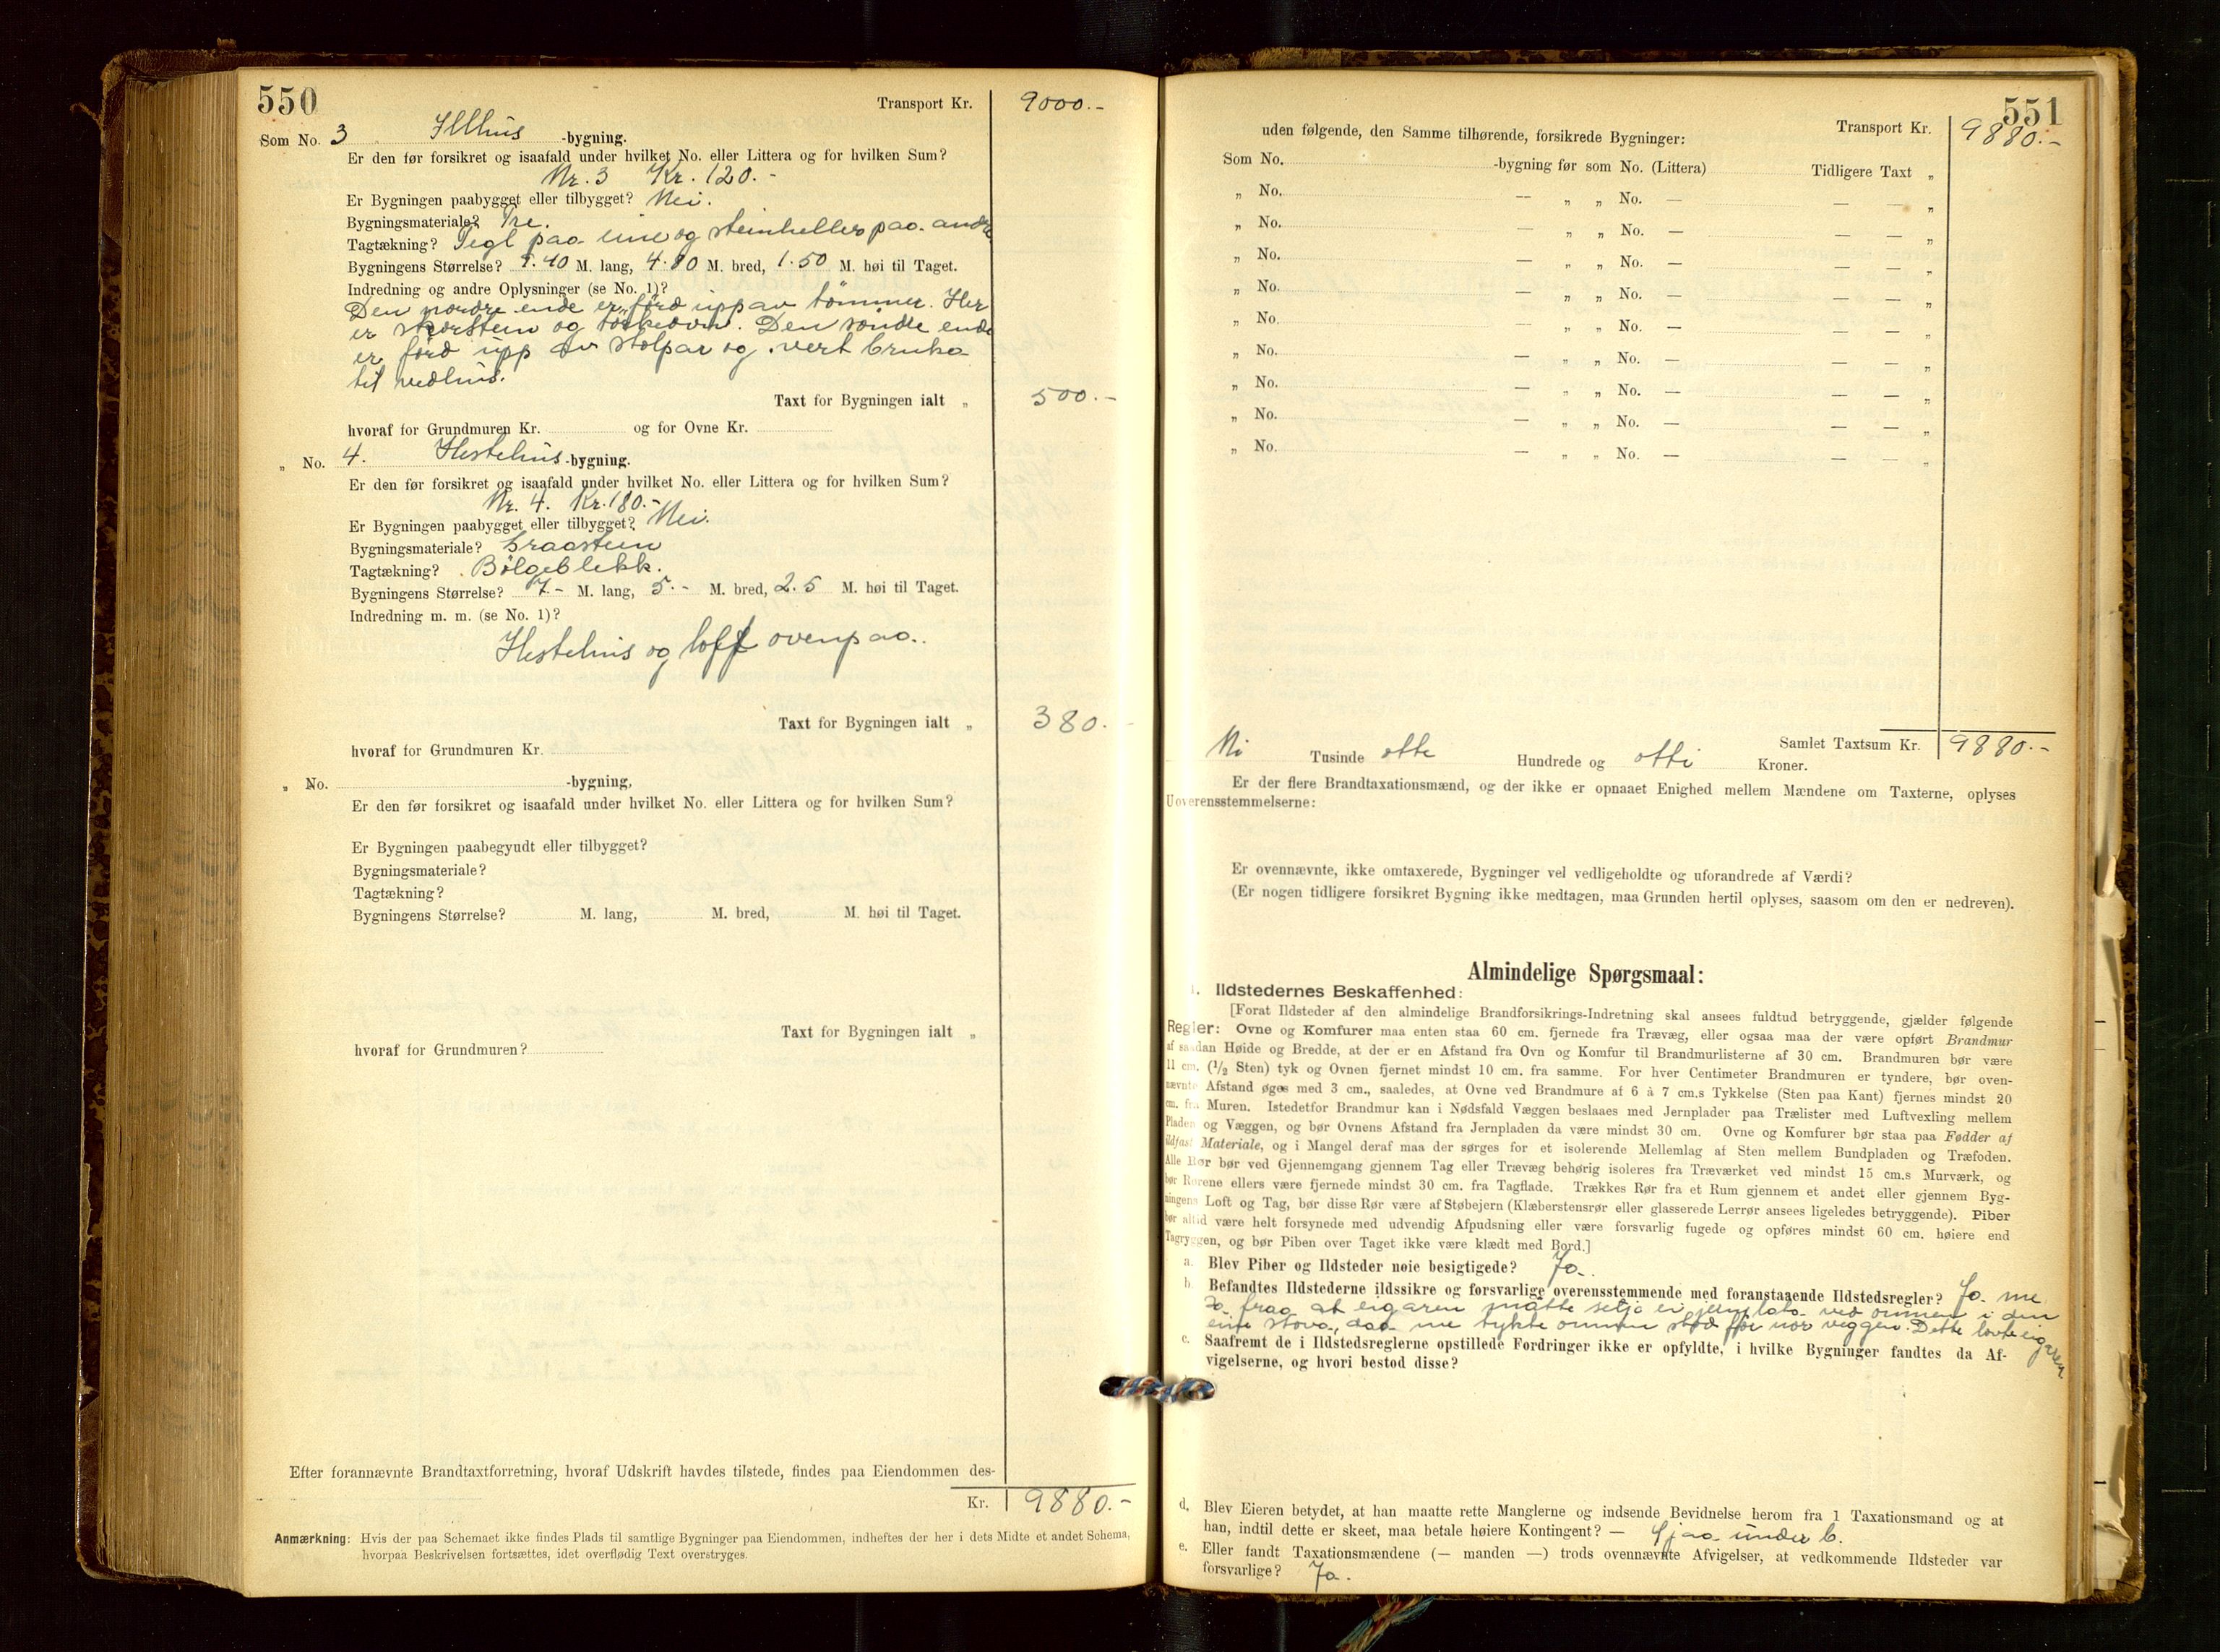 550
Transport Kr. 9000.-
Som No. 3 Illhus -bygning.
Er den før forsikret og isaafald under hvilket No. eller Littera og for hvilken Sum?
Nr. 3 Kr. 120.-
Er Bygningen paabygget eller tilbygget? Nei.
Bygningsmateriale? Tre.
Tagtækning? Tegl paa eine og steinheller paa andre
Bygningens Størrelse? 9.40 M. lang, 4.80 M. bred, 1.50 M. høi til Taget.
Indredning og andre Oplysninger (se No. 1)?
Den nordre ende er förd upp av tömmer. Her
er skorstein og Den söndre ende
er förd upp av stolpar og vert bruka
til vedhus.
Taxt for Bygningen ialt „ 500.-
hvoraf for Grundmuren Kr. og for Ovne Kr.
„ No. 4. Hestehus -bygning.
Er den før forsikret og isaafald under hvilket No. eller Littera og for hvilken Sum?
Nr. 4. Kr. 180.-
Er Bygningen paabygget eller tilbygget? Nei.
Bygningsmateriale? Graastein
Tagtækning? Bölgeblekk.
Bygningens Størrelse? 7.- M. lang, 5.- M. bred, 2.5 M. høi til Taget.
Indredning m. m. (se No. 1)?
Hestehus og loft ovenpaa.
Taxt for Bygningen ialt „ 380.-
hvoraf for Grundmuren Kr.
„ No. -bygning,
Er den før forsikret og isaafald under hvilket No. eller Littera og for hvilken Sum?
Er Bygningen paabegyudt eller tilbygget?
Bygningsmateriale?
Tagtækning?
Bygningens Størrelse? M. lang, M. bred, M. høi til Taget.
Taxt for Bygningen ialt „
hvoraf for Grundmuren?
Efter forannævnte Brandtaxtforretning, hvoraf Udskrift havdes tilstede, findes paa Eiendommen des-
Kr. 9880.-
Anmærkning: Hvis der paa Schemaet ikke findes Plads til samtlige Bygninger paa Eiendommen, indheftes der her i dets Midte et andet Schema,
hvorpaa Beskrivelsen fortsættes, idet overflødig Text overstryges.
551
Transport Kr. 9880.-
uden følgende, den Samme tilhørende, forsikrede Bygninger:
Som No. -bygning før som No. (Littera) Tidligere Taxt „
„ No. — „ „ No. — — — „
„ No. — „ „ No. — — — „
„ No. — „ „ No. — — — „
„ No. — „ „ No. — — — „
„ No. — „ „ No. — — — „
„ No. — „ „ No. — — — „
„ No. — „ „ No. — — — „
„ No. — „ „ No. — — — „
„ No. — „ „ No. — — — „
Samlet Taxtsum Kr. 9880.-
Ni Tusinde otte Hundrede og otti Kroner.
Er der flere Brandtaxationsmænd, og der ikke er opnaaet Enighed mellem Mændene om Taxterne, oplyses
Uoverensstemmelserne:
Er ovennævnte, ikke omtaxerede, Bygninger vel vedligeholdte og uforandrede af Værdi?
(Er nogen tidligere forsikret Bygning ikke medtagen, maa Grunden hertil oplyses, saasom om den er nedreven).
Almindelige Spørgsmaal:
1. Ildstedernes Beskaffenhed:
[Forat Ildsteder af den almindelige Brandforsikrings-Indretning skal ansees fuldtud betryggende, gjælder følgende
Regler: Ovne og Komfurer maa enten staa 60 cm. fjernede fra Trævæg, eller ogsaa maa der være opført Brandmur
af saadan Høide og Bredde, at der er en Afstand fra Ovn og Komfur til Brandmurlisterne af 30 cm. Brandmuren bør være
11 cm. (1/2 Sten) tyk og Ovnen fjernet mindst 10 cm. fra samme. For hver Centimeter Brandmuren er tyndere, bør oven-
nævnte Afstand øges med 3 cm., saaledes, at Ovne ved Brandmure af 6 à 7 cm.s Tykkelse (Sten paa Kant) fjernes mindst 20
cm. fra Muren. Istedetfor Brandmur kan i Nødsfald Væggen beslaaes med Jernplader paa Trælister med Luftvexling mellem
Pladen og Væggen, og bør Ovnens Afstand fra Jernpladen da være mindst 30 cm. Ovne og Komfurer bør staa paa Fødder af
ildfast Materiale, og i Mangel deraf maa der sørges for et isolerende Mellemlag af Sten mellem Bundpladen og Træfoden.
Alle Rør bør ved Gjennemgang gjennem Tag eller Trævæg behørig isoleres fra Træværket ved mindst 15 cm.s Murværk, og
bør Rørene ellers være fjernede mindst 30 cm. fra Tagflade. Trækkes Rør fra et Rum gjennem et andet eller gjennem Byg-
ningens Loft og Tag, bør disse Rør være af Støbejern (Klæberstensrør eller glasserede Lerrør ansees ligeledes betryggende). Piber
bør altid være helt forsynede med udvendig Afpudsning eller være forsvarlig fugede og opføres mindst 60 cm. høiere end
Tagryggen, og bør Piben over Taget ikke være klædt med Bord.]
a. Blev Piber og Ildsteder nøie besigtigede? Ja.
b. Befandtes Ildstederne ildssikre og forsvarlige overensstemmende med foranstaaende Ildstedsregler? Ja. me
sa fraa at eigaren maatte setja ei jernplata ved omnen i den
eine stova, daa me tykte omnen stod for nær veggen. Dette lovte eigaren
c. Saafremt de i Ildstedsreglerne opstillede Fordringer ikke er opfyldte, i hvilke Bygninger fandtes da Af-
vigelserne, og hvori bestod disse?
d. Blev Eieren betydet, at han maatte rette Manglerne og indsende Bevidnelse herom fra 1 Taxationsmand og at
han, indtil dette er skeet, maa betale høiere Kontingent? — Sjaa under b.
e. Eller fandt Taxationsmændene (— manden —) trods ovennævnte Afvigelser, at vedkommende Ildsteder var
forsvarlige? Ja.